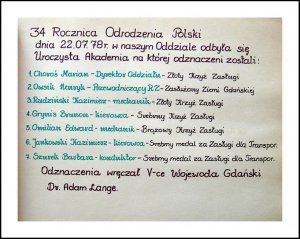 34 Rocznica Odrodzenia Polski
dnia 22.07.78r. w naszym Oddziale odbyła się
Uroczysta Akademia na której odznaczeni zostali:
1. Choroś Marian - Dyrektor Oddziału - Złoty Krzyż Zasługi
2. Owsik Henryk - Przewodniczący RZ - Zasłużony Ziemi Gdańskiej
3. Radziński Kazimierz - mechanik - Złoty Krzyż Zasługi
4. Grynis Brunon - kierowca - Srebrny Krzyż Zasługi
5. Omilian Edward - mechanik - Brązowy Krzyż Zasługi
6. Jankowski Kazimierz - kierowca - Srebrny medal za Zasługi dla Transpor.
7. Szurek Barbara - konduktor - Srebrny medal za Zasługi dla Transpor.
Odznaczenia wręczał V-ce Wojewoda Gdański
Dr. Adam Lange.